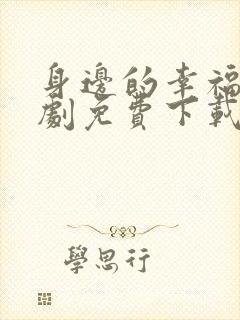 身邊的幸福
劇免費下載
學思行